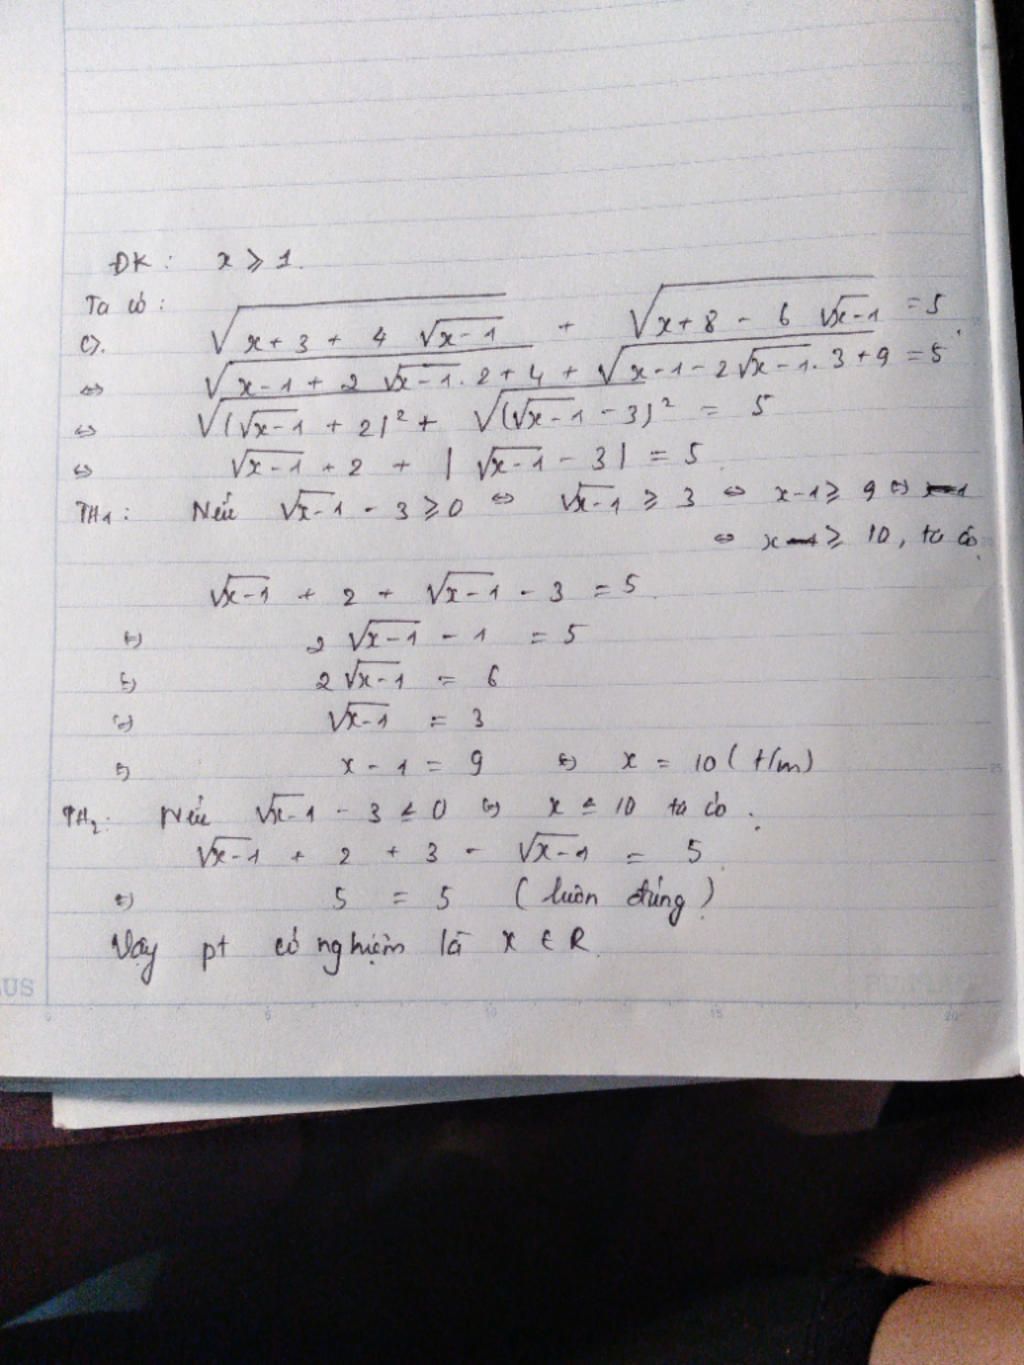 ĐK : x ⩾ 1.
Ta có :
c). √(x+3 + 4 √(x-1)) + √(x+8 - 6 √(x-1)) = 5
⇔ √(x-1 + 2 √(x-1) . 2 + 4) + √(x-1 - 2√(x-1) . 3 + 9) = 5
⇔ √((√(x-1) + 2)²) + √((√(x-1) - 3)²) = 5
⇔ √(x-1) + 2 + | √(x-1) - 3 | = 5
TH1 : Nếu √(x-1) - 3 ⩾ 0 ⇔ √(x-1) ⩾ 3 ⇔ x-1 ⩾ 9 ⇔
⇔ x ⩾ 10, ta có
√(x-1) + 2 + √(x-1) - 3 = 5
⇔ 2 √(x-1) - 1 = 5
⇔ 2 √(x-1) = 6
⇔ √(x-1) = 3
⇔ x - 1 = 9 ⇔ x = 10 (t/m)
TH2 : Nếu √(x-1) - 3 ≤ 0 ⇔ x ≤ 10 ta có :
√(x-1) + 2 + 3 - √(x-1) = 5
⇔ 5 = 5 (luôn đúng)
Vậy pt có nghiệm là x ∈ R
US
0 5 10 15 20